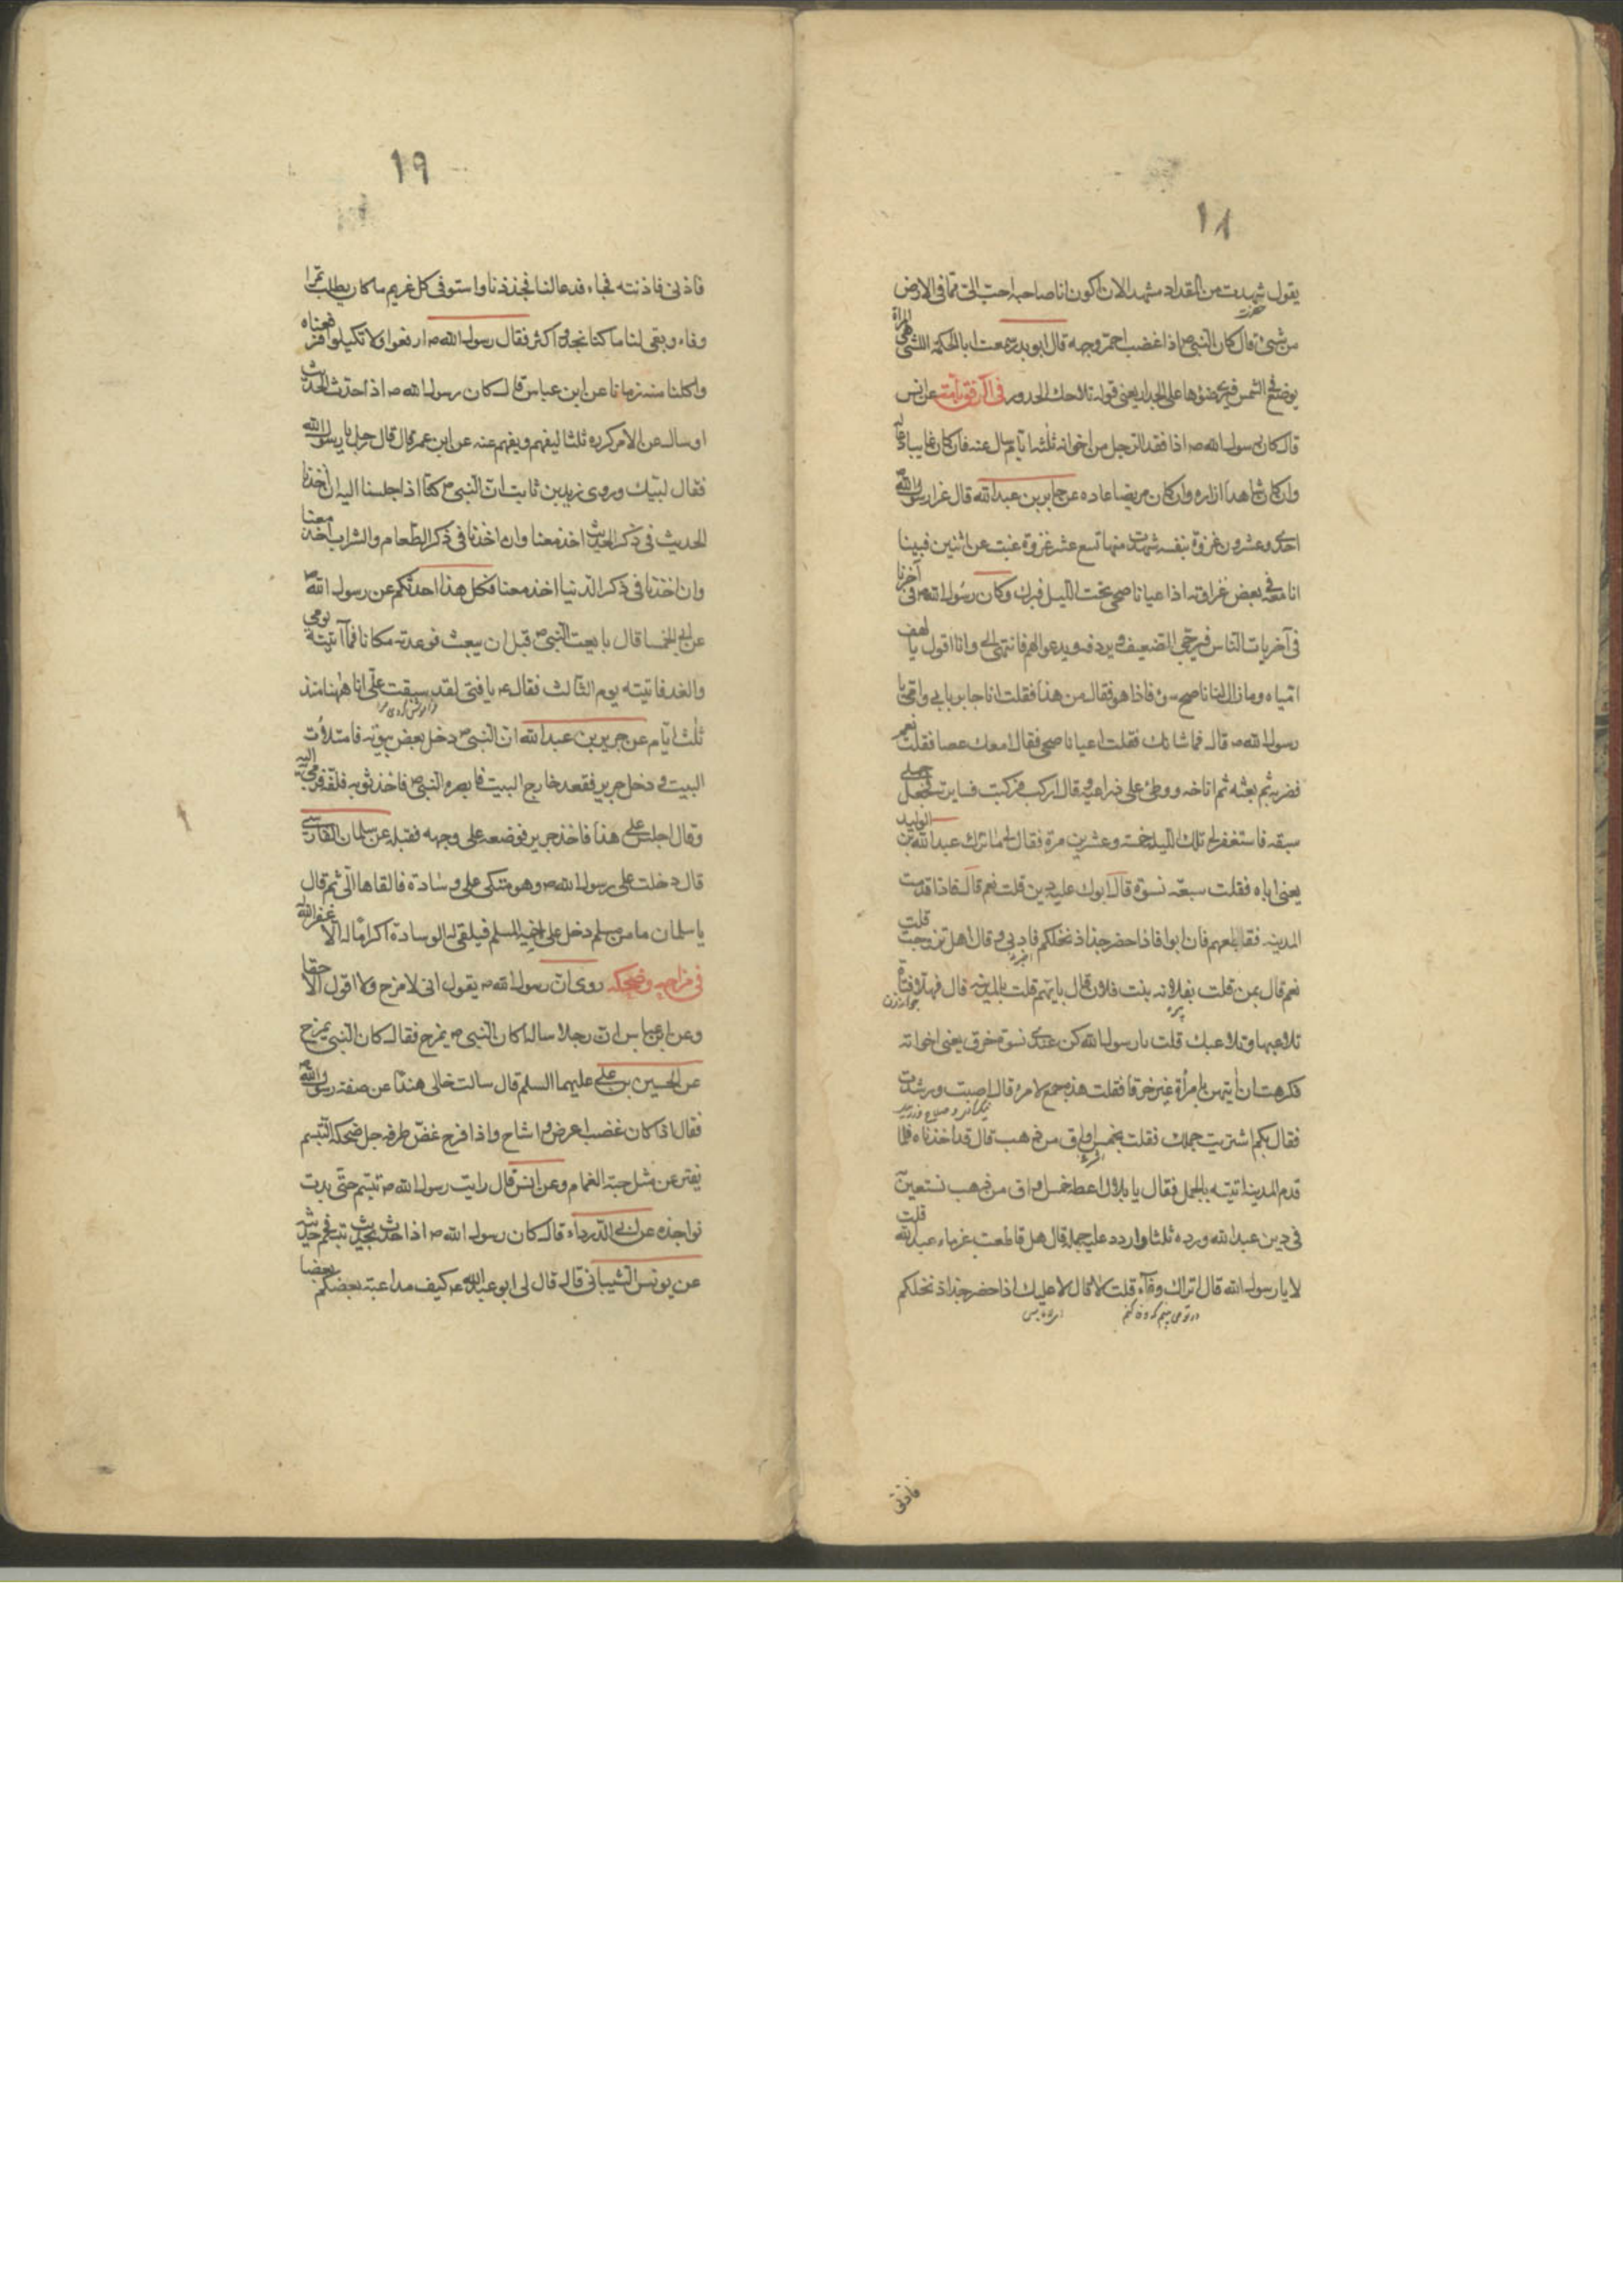 ١٨
يقول شهدت من المقداد مشهدا لان اكون انا صاحبه احب الى مما فى الارض
من شئ قال كان النبى ص اذا غضب احمر وجهه قال ابو بدر سمعت ابا الحكم الليثى هى المراة
يوضع فى الشمس فيرى ضوؤها على الجدار يعنى قوله تلاحك الجدور فى الرفق بامته عن انس
قال كان رسول الله ص اذا فقد الرجل من اخوانه ثلثه ايام سال عنه فان كان غايبا دعا له
وان كان شاهدا زاره وان كان مريضا عاده عن جابر بن عبدالله قال غزا رسول الله
احدى وعشرون غزوة بنفسه شهدت منها تسع عشر غزوة غبت عن اثنين فبينا
انا معه فى بعض غزاوته اذا عيا ناضحى تحت الليل فبرك وكان رسول الله ص فى آخرنا
فى آخريات الناس فيزجى الضعيف و يردفه ويدعوا لهم فانتهى الى وانا اقول يا لهف
امياه وما زال لنا ناضح سوء فاذا هو فقال من هذا فقلت انا جابر بابى وامى يا
رسول الله ص قال فما شانك فقلت اعيا ناضحى فقال امعك عصا فقلت نعم
فضربه ثم بعثه ثم اناخه ووطئ على ذراعيه وقال اركب فركبت فسايرته فجعل جملى
سبقه فاستغفر لى تلك الليلة خمسة وعشرين مرة فقال لى ما ترك عبدالله من الولد
يعنى اباه فقلت سبعه نسوة قال ابوك عليه دين قلت نعم قال فاذا قدمت
المدينه فقاطعهم فان ابوا فاذا حضر جذاذ نخلكم فاذنى و قال اهل تزوجت قلت
نعم قال بمن قلت بفلانه بنت فلان قال بايتهم قلت بالمدينه قال فهلا فتاة
تلاعبها وتلاعبك قلت يا رسول الله كن عندى نسوة خرق يعنى اخواته
فكرهت ان ايتهن بامراة غير خرقا فقلت هذه اجمع لامرى قال اصبت ورشدت
فقال بكم اشتريت جملك فقلت بخمس اواق من ذهب قال قد اخذناه فلما
قدم المدينه اتيته بالجمل فقال يا بلال اعطه خمس اواق من ذهب نستعين
فى دين عبدالله وزده ثلثا واردد عليه جمله قال هل قاطعت غرماء عبدالله قلت
لا يا رسول الله قال اترك وفآء قلت لا قال لا عليك اذا حضر جذاذ نخلكم
فاذنى
١٩
فاذنى فاذنته فجاء فدعا لنا فجذذنا واستوفى كل غريم ما كان يطلب تمرا
وفاء وبقى لنا ما كنا نجد واكثر فقال رسول الله ص ارفعوا ولا تكيلوا فرفعناه
واكلنا منه زمانا عن ابن عباس قال كان رسول الله ص اذا حدث الحديث
او سال عن الامر كرره ثلثا ليفهم ويفهم عنه عن ابن عمر قال قال رجل يا رسول الله
فقال لبيك وروى زيد بن ثابت ان النبى ص كنا اذا جلسنا اليه ان اخذنا
الحديث فى ذكر الحديث اخذ معنا وان اخذنا فى ذكر الطعام والشراب اخذ معنا
وان اخذنا فى ذكر الدنيا اخذ معنا فكل هذا احدثكم عن رسول الله ص
عن ابى الخمسا قال بايعت النبى ص قبل ان يبعث فوعدته مكانا فما آتيته يومى
والغد فاتيته يوم الثالث فقال ع يا فتى لقد سبقت على انا ههنا منذ
ثلث ايام عن جرير بن عبدالله ان النبى ص دخل بعض بيوته فامتلات
البيت و دخل جرير فقعد خارج البيت فابصره النبى ص فاخذ ثوبه فلفه فرمى اليه
وقال اجلس على هذا فاخذ جرير فوضعه على وجهه فقبله عن سلمان الفارسى
قال دخلت على رسول الله ص وهو متكى على وسادة فالقاها الى ثم قال
يا سلمان ما من مسلم دخل على اخيه المسلم فيلقى له الوسادة اكراما له الا غفر الله
فى مزاحه وضحكه روى ان رسول الله ص يقول انى لامزح ولا اقول الا حقا
وعن ابن عباس ان رجلا ساله اكان النبى ص يمزح فقال كان النبى يمزح
عن الحسين بن على عليهما السلم قال سالت خالى هندا عن صفه رسول الله
فقال اذا كان غضب اعرض و اشاح واذا فرح غض طرفه جل ضحكه التبسم
يفتر عن مثل حبة الغمام وعن انس قال رايت رسول الله ص تبسم حتى بدت
نواجذه عن ابى الدرداء قال كان رسول الله ص اذا حدث بحديث تبسم فى حديثه
عن يونس الشيبانى قال قال لى ابو عبدالله ع كيف مداعبة بعضكم بعضا